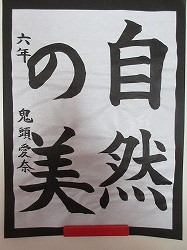 自然
の美
六年 鬼頭愛奈